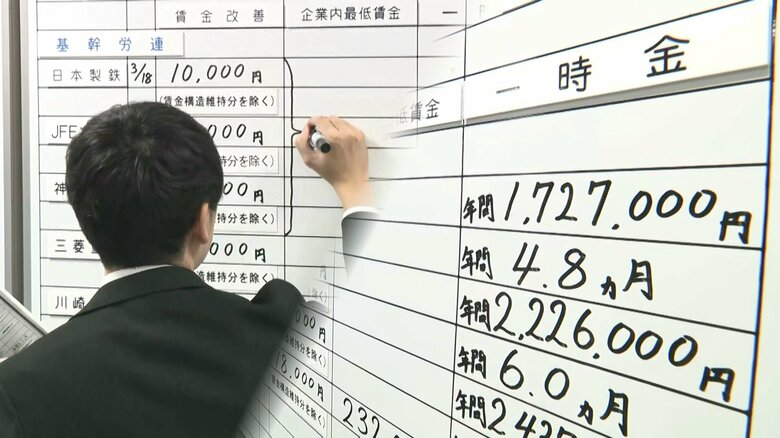 賃金改善
企業内最低賃金
一
基幹労連
日本製鉄 3/18 10,000円
(賃金構造維持分を除く)
JFE 000円
持分を除く)
神 00円
維持分を除く)
三菱 000円
構造維持分を除く)
川崎
000円
分を除く)
18,000円
賃金構造維持分を除く)
232
低賃金
一時金
年間1,727,000円
年間4.8ヵ月
年間2,226,000円
年間6.0ヵ月
年間2,4